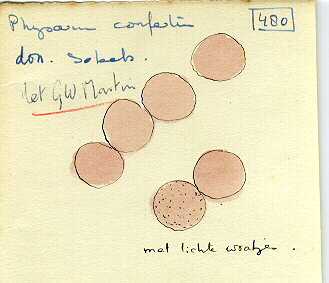 Physarum confertum
480
don. Sobels.
det GW Martin
met lichte wratjes.